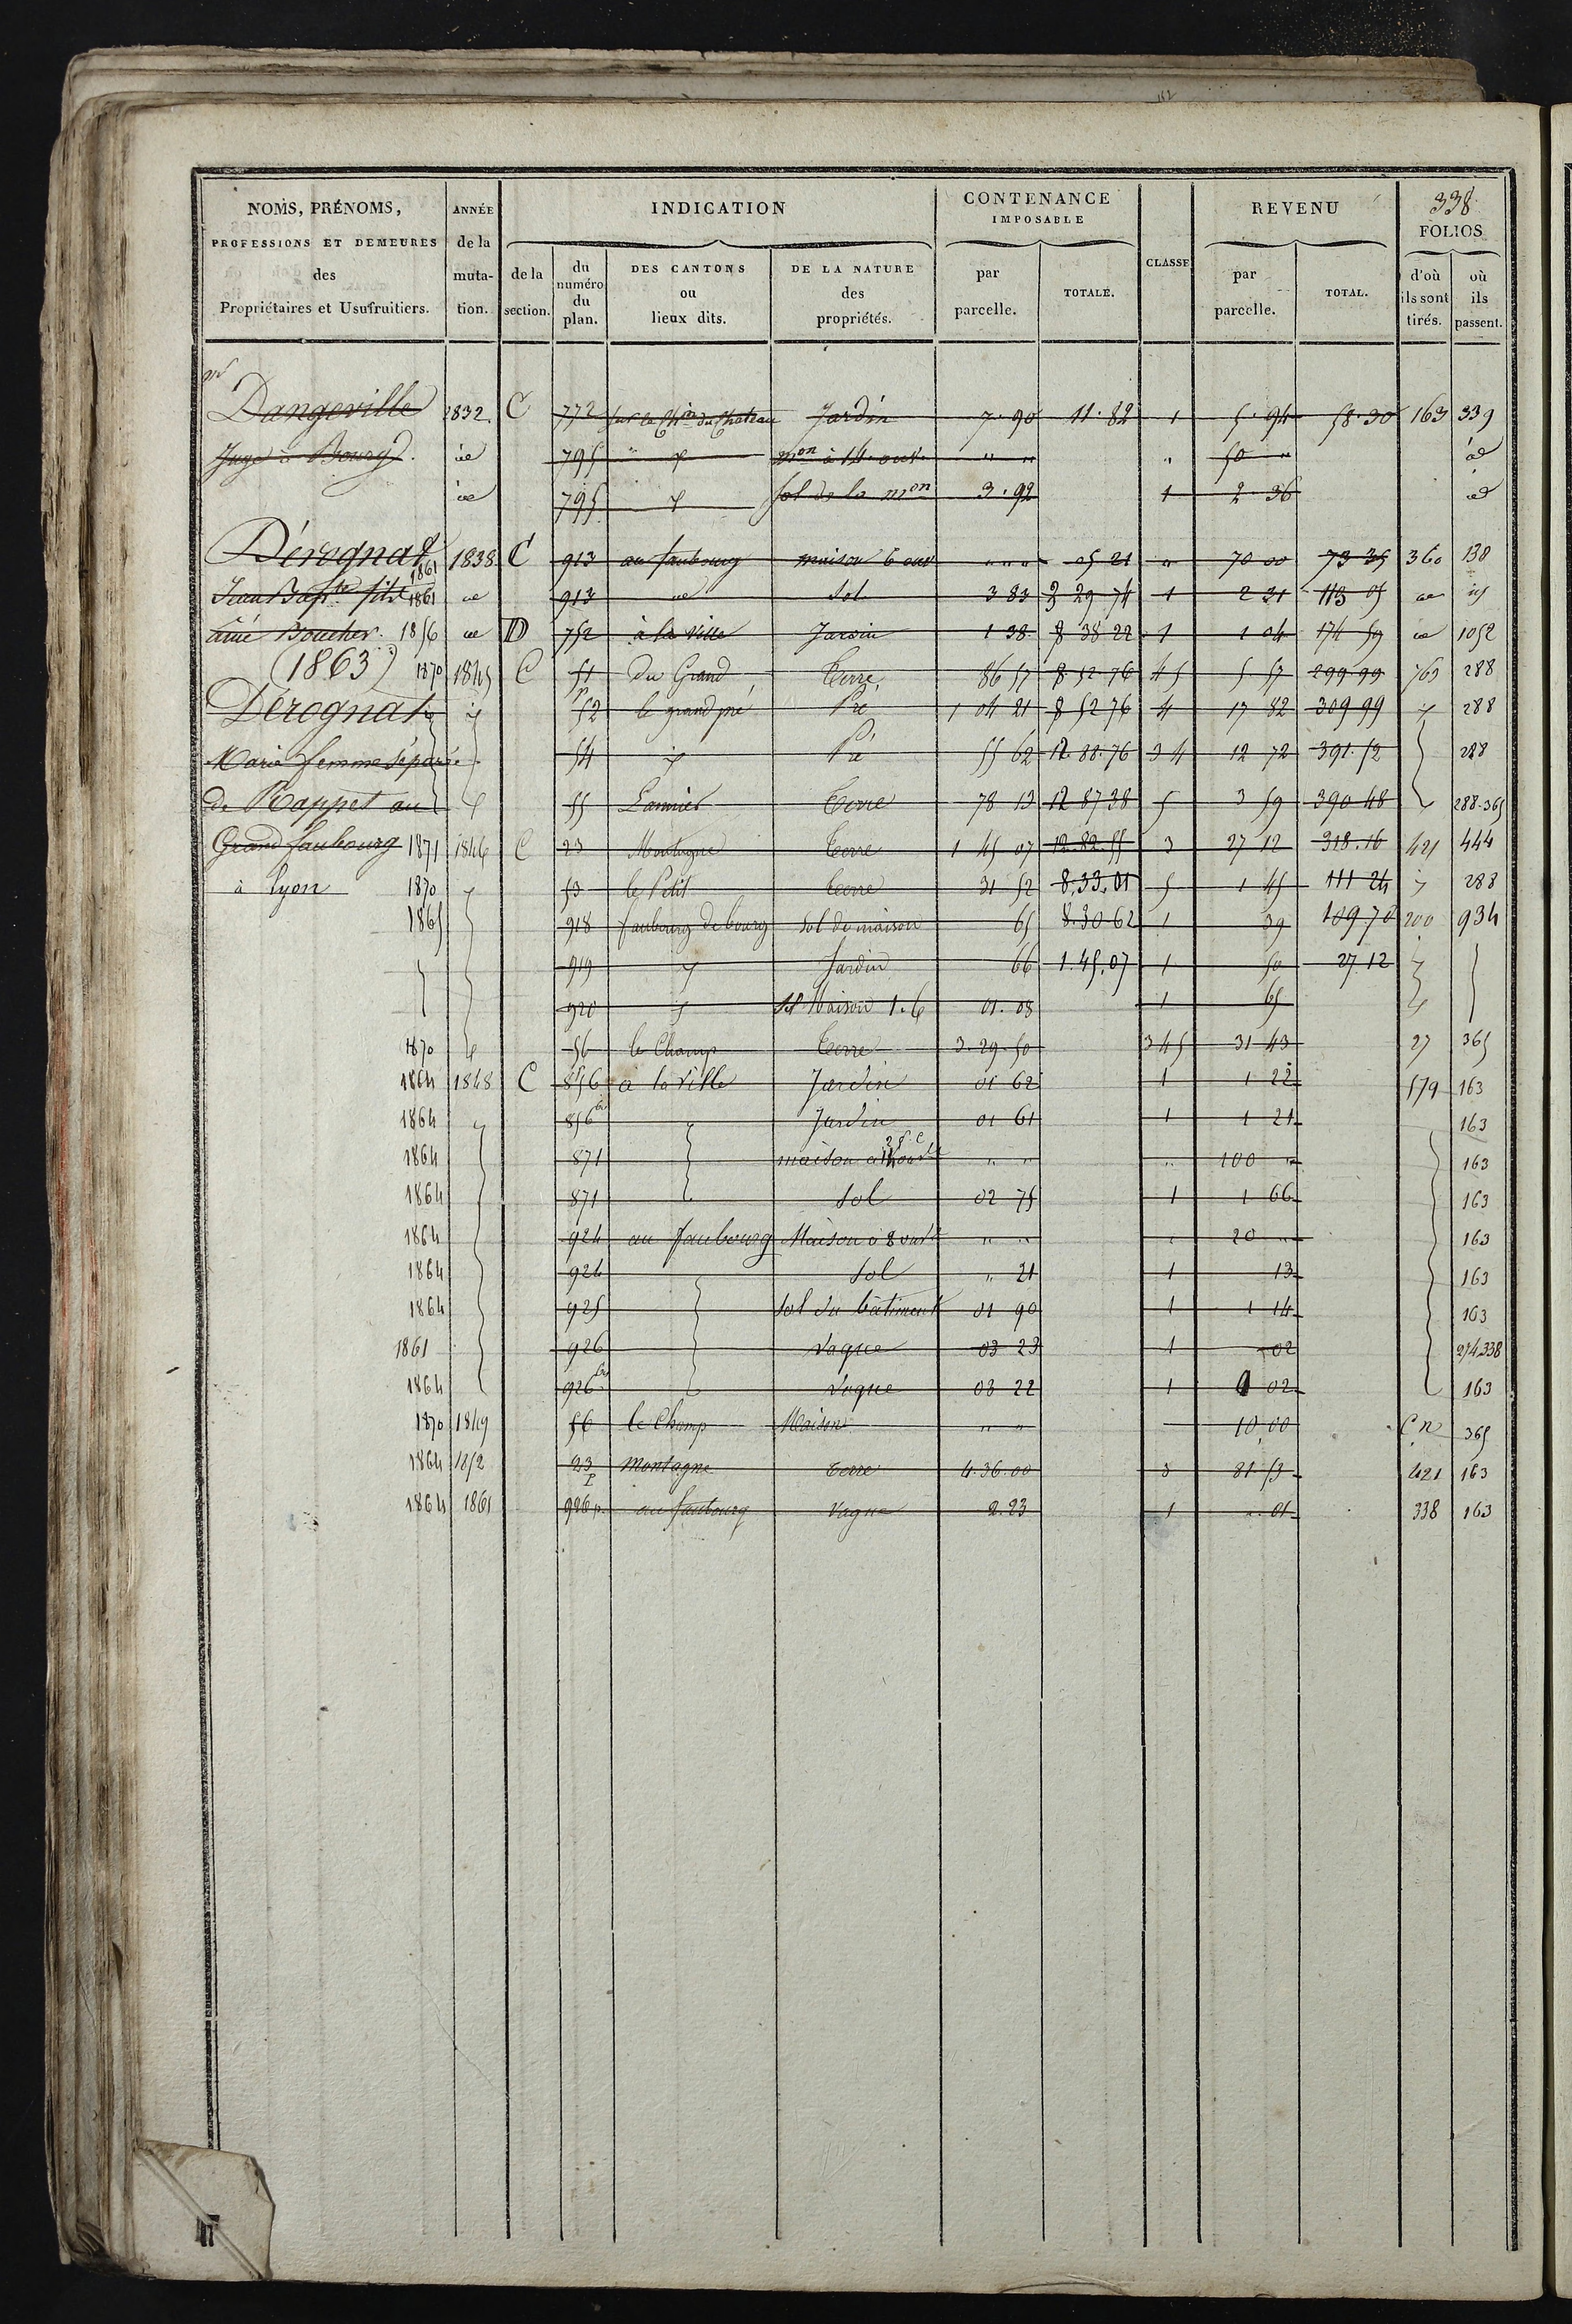 338
NOMS, PRÉNOMS, PROFESSIONS ET DEMEURES des Propriétaires et Usufruitiers.
ANNÉE de la mutation.
INDICATION
de la section.
du numéro du plan.
DES CANTONS ou lieux dits.
DE LA NATURE des propriétés.
CONTENANCE IMPOSABLE
par parcelle.
TOTALE.
CLASSE
REVENU
par parcelle.
TOTAL.
FOLIOS
d'où ils sont tirés.
où ils passent.
Dangeville 1832. C 772 sur le Ch.in du Chateau Jardin 7.90 11.82 1 5.94 58.30 163 339
Juge à Bourg. id 795 " mon à 14 ouv. " " " 50 " id
id 795 sol de la mon 3.92 1 2.36 id
Dérognat 1861 1838 C 913 au faubourg maison 6 ouv " " " 05 21 " 70 00 73 35 360 138
Jean Bapte fils 1861 id 913 id Sol 3 83 3 29 74 1 2 31 113 05 id
ainé Boucher. 1856 id D 752 à la Ville Jardin 1 38 8 38 22 1 1 04 174 59 id 1052
(1863) 1870 1845 C 51 Du Grand Terre 86 57 8 52 76 45 5 57 299 99 763 288
Dérognat 52 le grand pré Pré 1 04 21 8 52 76 4 17 82 309 99 288
Marie femme séparée 54 Pré 55 62 12.88.76 34 12 72 391.52 288
de Rappet au 55 Lannier Terre 78 13 12 87 38 5 3 59 390 48 288.365
Grand faubourg 1871 1846 C 23 Montagne Terre 1 45 07 12.82.55 3 27 12 318.16 421 444
à Lyon 1870 53 le Petit Terre 31 52 8.33.01 5 1 45 111 24 288
1865 918 faubourg de bourg Sol de maison 65 8.30 62 1 39 109 70 200 934
919 Jardin 66 1.45.07 1 50 27.12
920 Sol Maison 1.6 01.08 1 65
1870 56 le Champ Terre 3.29.50 345 31 43 27 365
1864 1848 C 856 à la Ville Jardin 01 62 1 1 22 579 163
1864 856 bis Jardin 01 61 1 1 21 163
1864 871 maison à " " " 100 " 163
1864 871 Sol 02 75 1 1 66 163
1864 924 au faubourg Maison à 8 ouv " " " 20 " 163
1864 924 Sol " 21 1 13 163
1864 925 Sol du bâtiment 01 90 1 1 14 163
1861 926 Vague 03 23 1 02 274.338
1864 926 bis Vague 03 22 1 02 163
1870 1849 56 le Champ Maison " " 10.00 C n 365
1864 1852 23 p Montagne Terre 4.36.00 3 81.53 421 163
1864 1861 926 p. au faubourg Vague 2.23 1 ".01 338 163